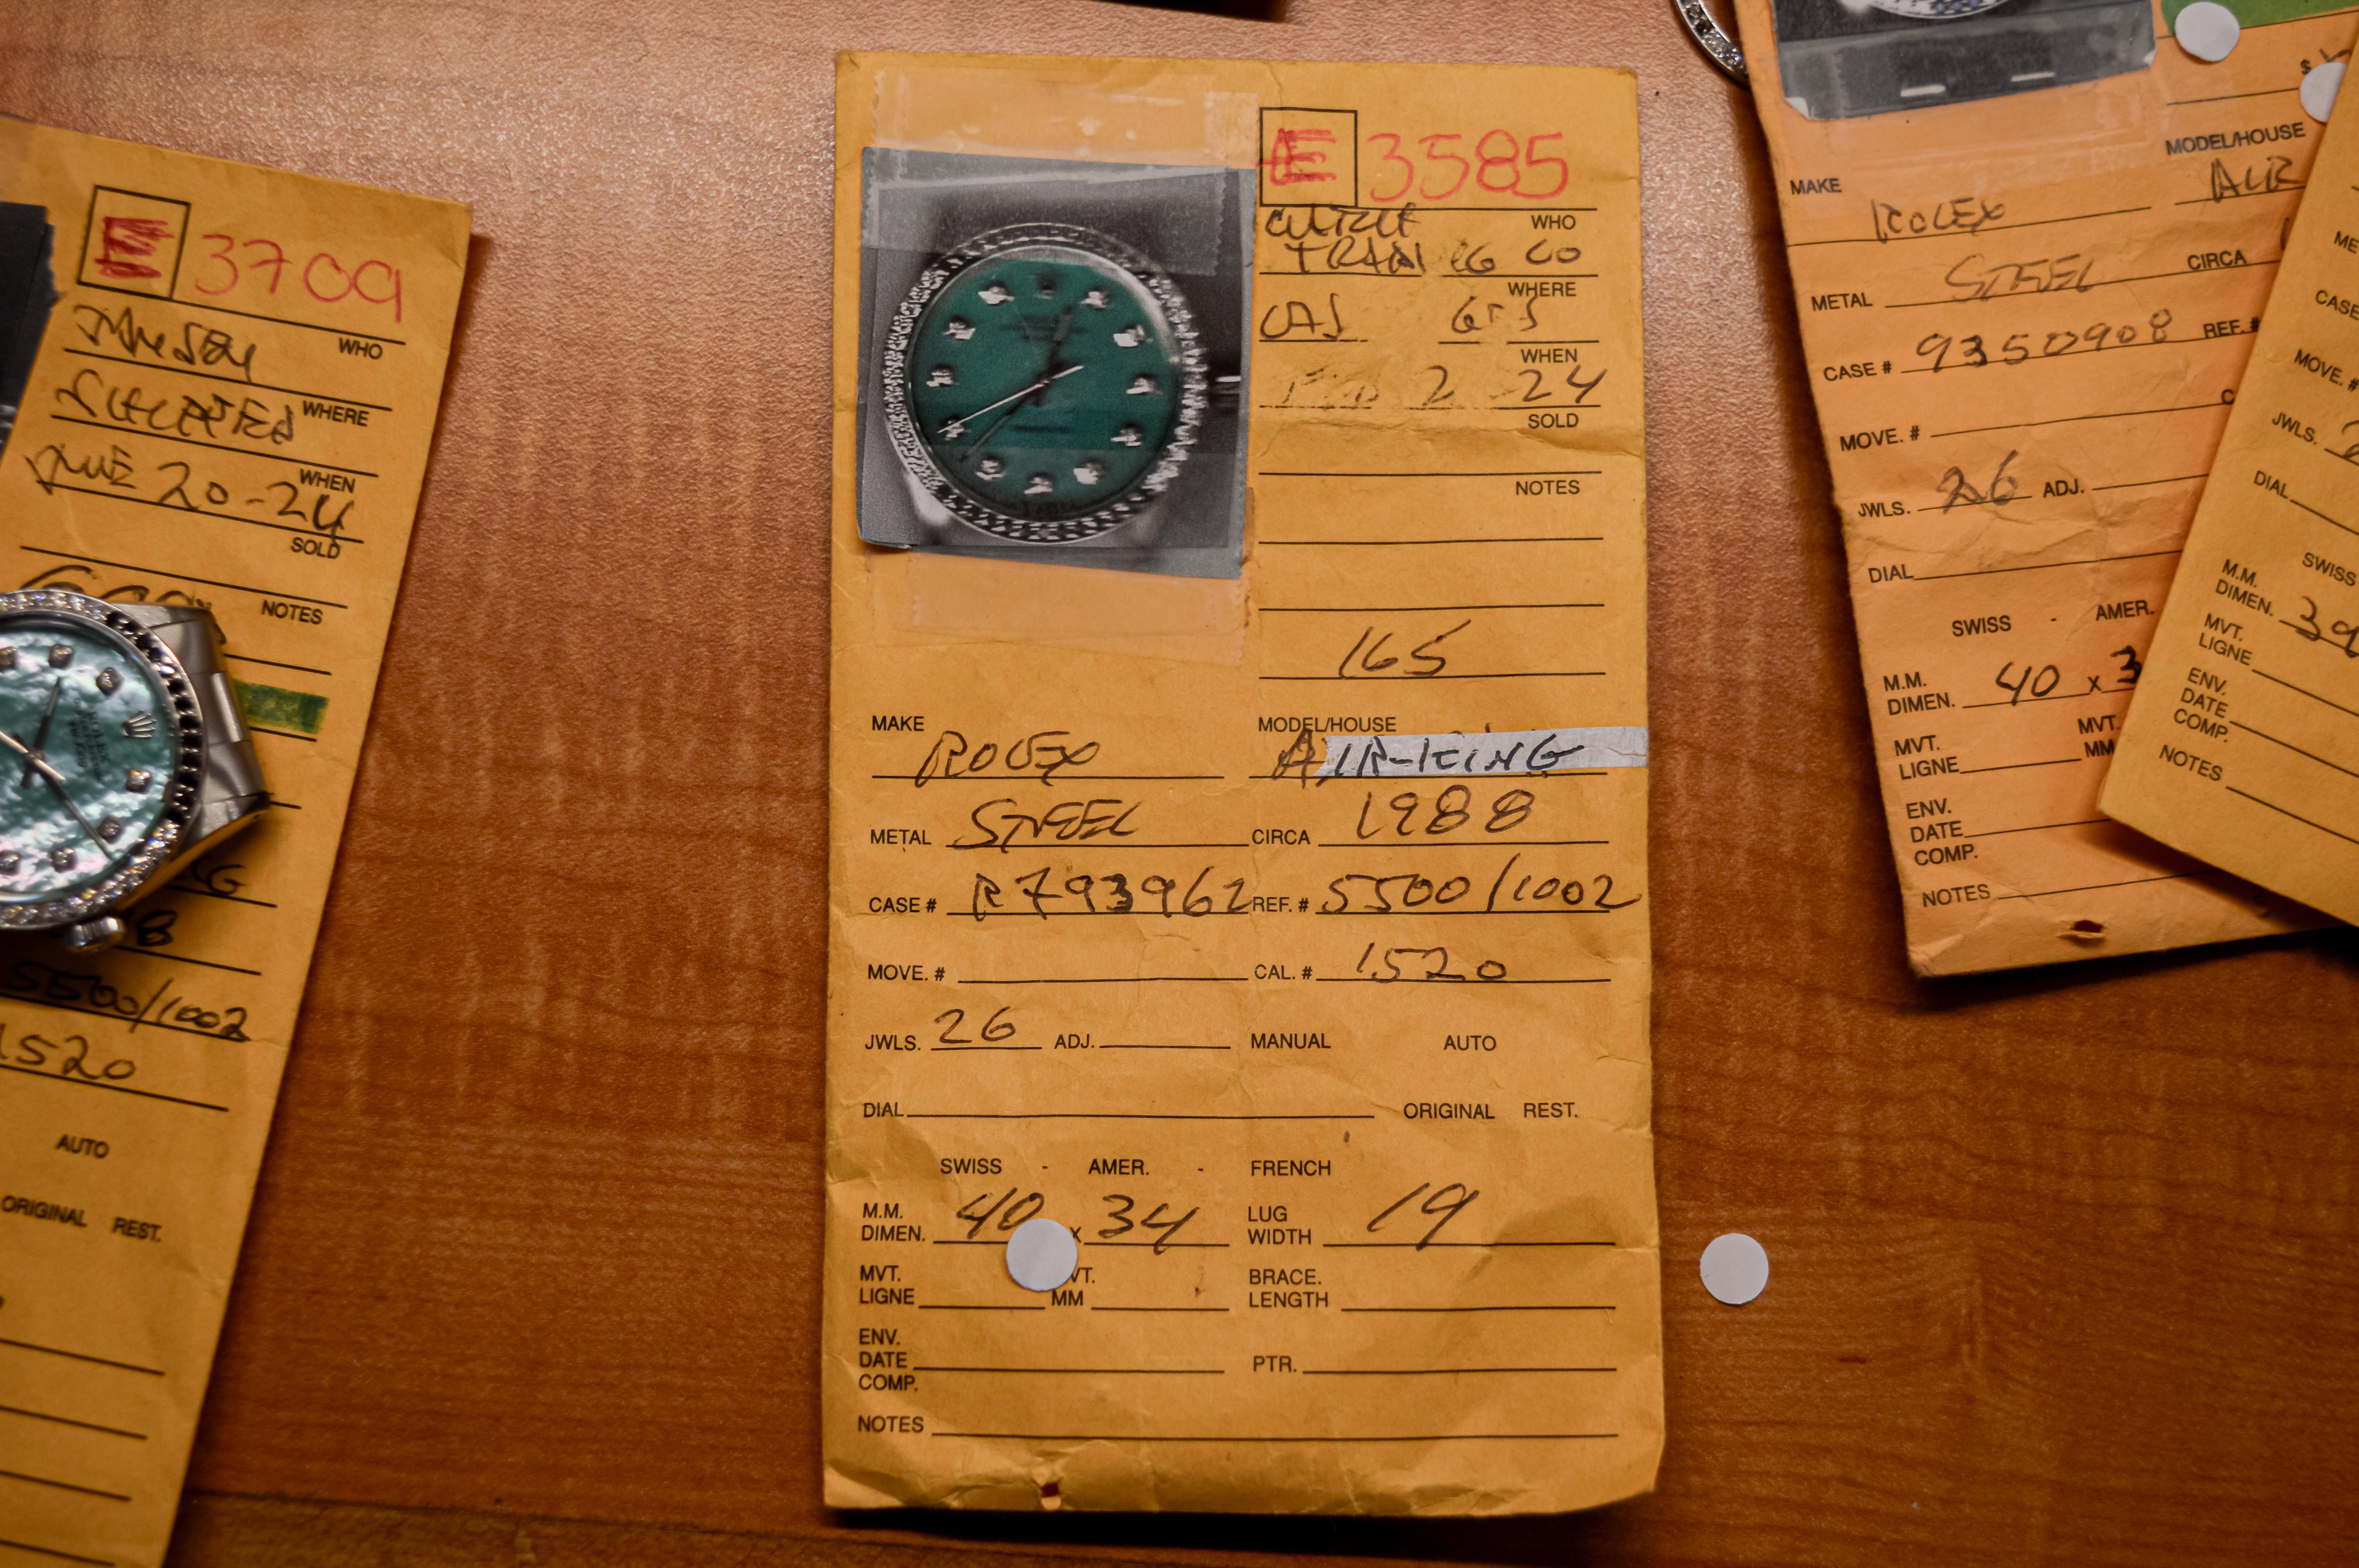 E 3709
WHO
WHERE
JUNE 20-24 WHEN
SOLD
NOTES
5500/1002
1520
AUTO
ORIGINAL REST.
E 3585
WHO
TRADING CO
WHERE
WHEN
2 24
SOLD
NOTES
165
MAKE ROLEX MODEL/HOUSE AIR-KING
METAL STEEL CIRCA 1988
CASE # R793962 REF. # 5500/1002
MOVE. # CAL. # 1520
JWLS. 26 ADJ. MANUAL AUTO
DIAL ORIGINAL REST.
SWISS - AMER. - FRENCH
M.M. DIMEN. 40 x 34 LUG WIDTH 19
MVT. LIGNE MM BRACE. LENGTH
ENV. DATE COMP. PTR.
NOTES
$
MODEL/HOUSE
MAKE ROLEX AIR
METAL STEEL CIRCA
CASE # 9350908 REF. #
MOVE. #
JWLS. 26 ADJ.
DIAL
SWISS - AMER.
M.M. DIMEN. 40 x 3
MVT. LIGNE MVT. MM
ENV. DATE COMP.
NOTES
CASE
MOVE. #
JWLS.
DIAL
SWISS
M.M. DIMEN. 39
MVT. LIGNE
ENV. DATE COMP.
NOTES